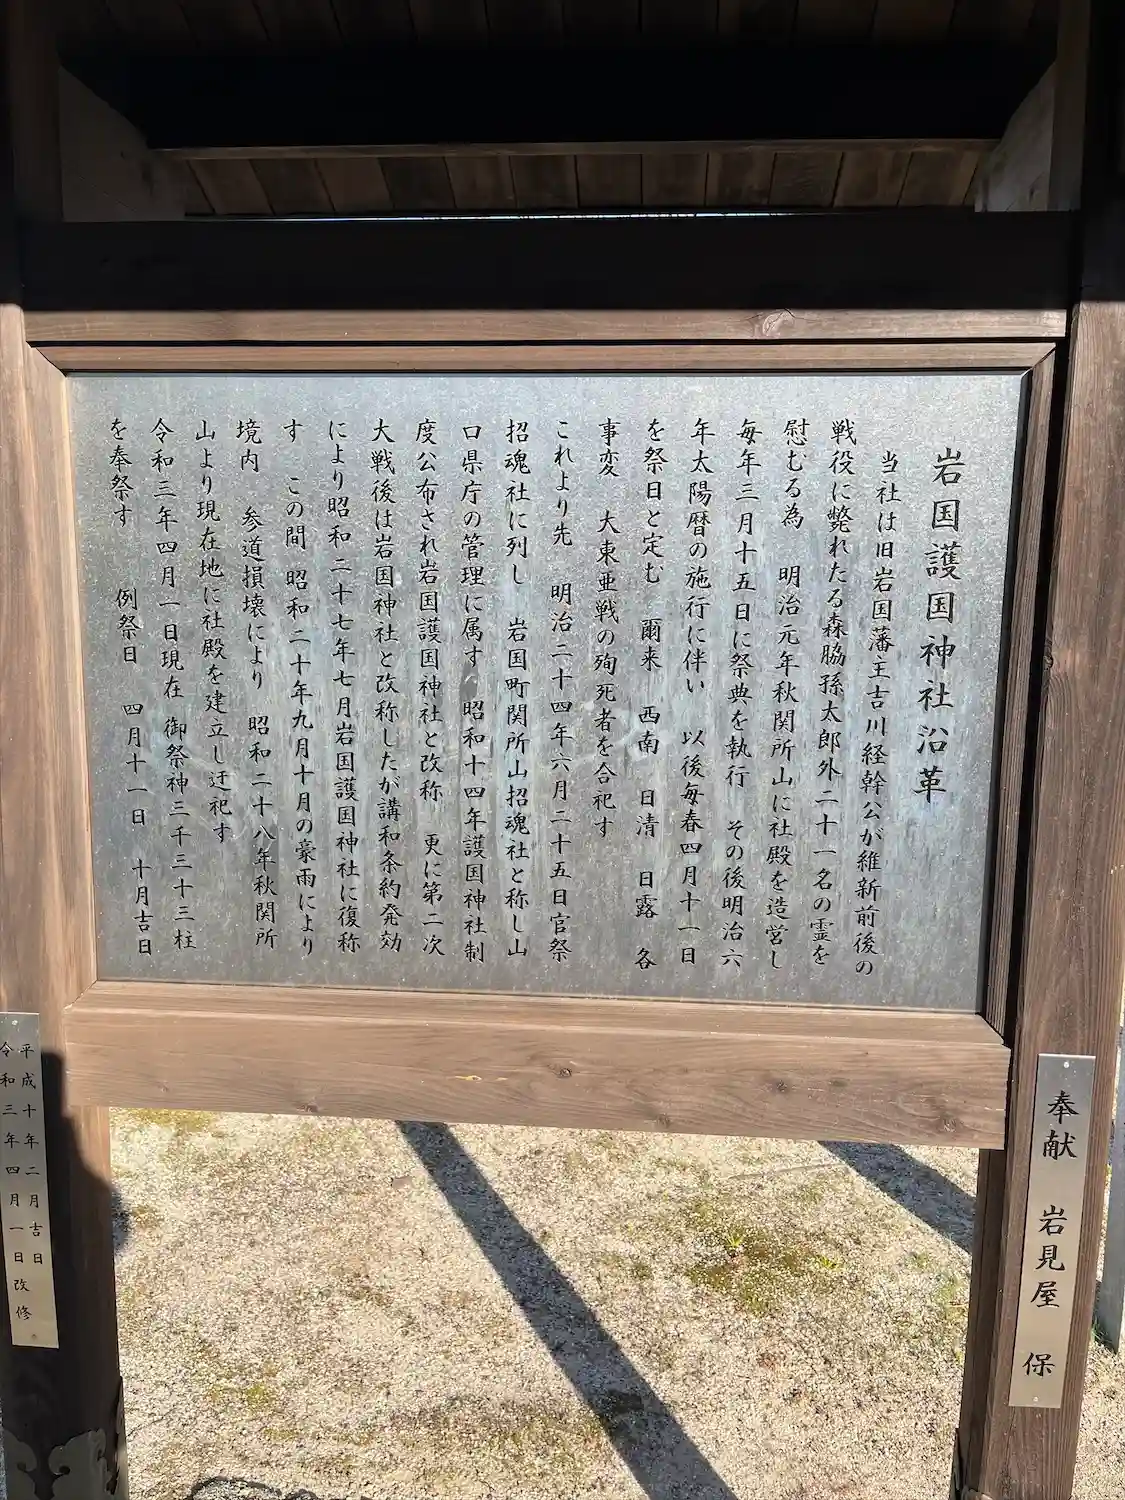 岩国護国神社沿革
当社は旧岩国藩主吉川経幹公が維新前後の
戦役に斃れたる森脇孫太郎外二十一名の霊を
慰むる為 明治元年秋関所山に社殿を造営し
毎年三月十五日に祭典を執行 その後明治六
年太陽暦の施行に伴い 以後毎春四月十一日
を祭日と定む 爾来 西南 日清 日露 各
事変 大東亜戦の殉死者を合祀す
これより先 明治二十四年六月二十五日官祭
招魂社に列し 岩国町関所山招魂社と称し山
口県庁の管理に属す 昭和十四年護国神社制
度公布され岩国護国神社と改称 更に第二次
大戦後は岩国神社と改称したが講和条約発効
により昭和二十七年七月岩国護国神社に復称
す この間 昭和二十年九月十月の豪雨により
境内 参道損壊により 昭和二十八年秋関所
山より現在地に社殿を建立し迁祀す
令和三年四月一日現在 御祭神三千三十三柱
を奉祭す 例祭日 四月十一日 十月吉日
奉献 岩見屋 保
平成十年二月吉日
令和三年四月一日改修